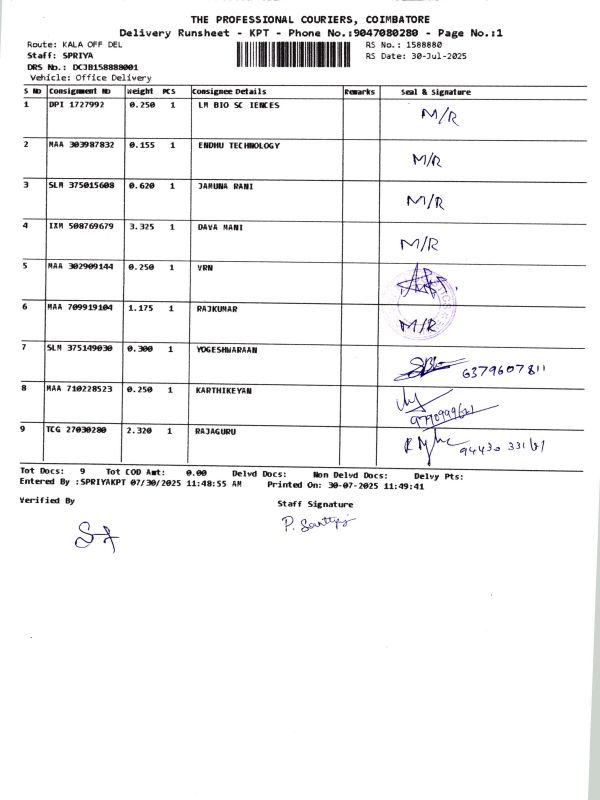 THE PROFESSIONAL COURIERS, COIMBATORE
Delivery Runsheet - KPT - Phone No.:9047080280 - Page No.:1
Route: KALA OFF DEL
RS No.: 1588880
Staff: SPRIYA
RS Date: 30-Jul-2025
DRS No.: DCJB158888001
Vehicle: Office Delivery
S No Consignment No Weight PCS Consignee Details Remarks Seal & Signature
1 DPI 1727992 0.250 1 LM BIO SC IENCES M/R
2 MAA 303987832 0.155 1 ENDHU TECHNOLOGY M/R
3 SLM 375015608 0.620 1 JAMUNA RANI M/R
4 IXM 508769679 3.325 1 DAVA MANI M/R
5 MAA 302909144 0.250 1 VRN
6 MAA 709919104 1.175 1 RAJKUMAR M/R
7 SLM 375149030 0.300 1 YOGESHWARAAN 6379607811
8 MAA 710228523 0.250 1 KARTHIKEYAN
9 TCG 27030280 2.320 1 RAJAGURU 94430
Tot Docs: 9 Tot COD Amt: 0.00 Delvd Docs: Non Delvd Docs: Delvy Pts:
Entered By :SPRIYAKPT 07/30/2025 11:48:55 AM Printed On: 30-07-2025 11:49:41
Verified By
Staff Signature